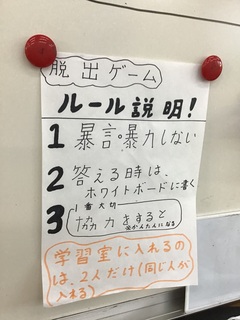 脱出ゲーム
ルール説明！
1 暴言・暴力しない
2 答える時は、
ホワイトボードに書く
3 一番大切
協力をすると
かんたんになる
学習室に入れるの
は、2人だけ(同じ人が
入れる)